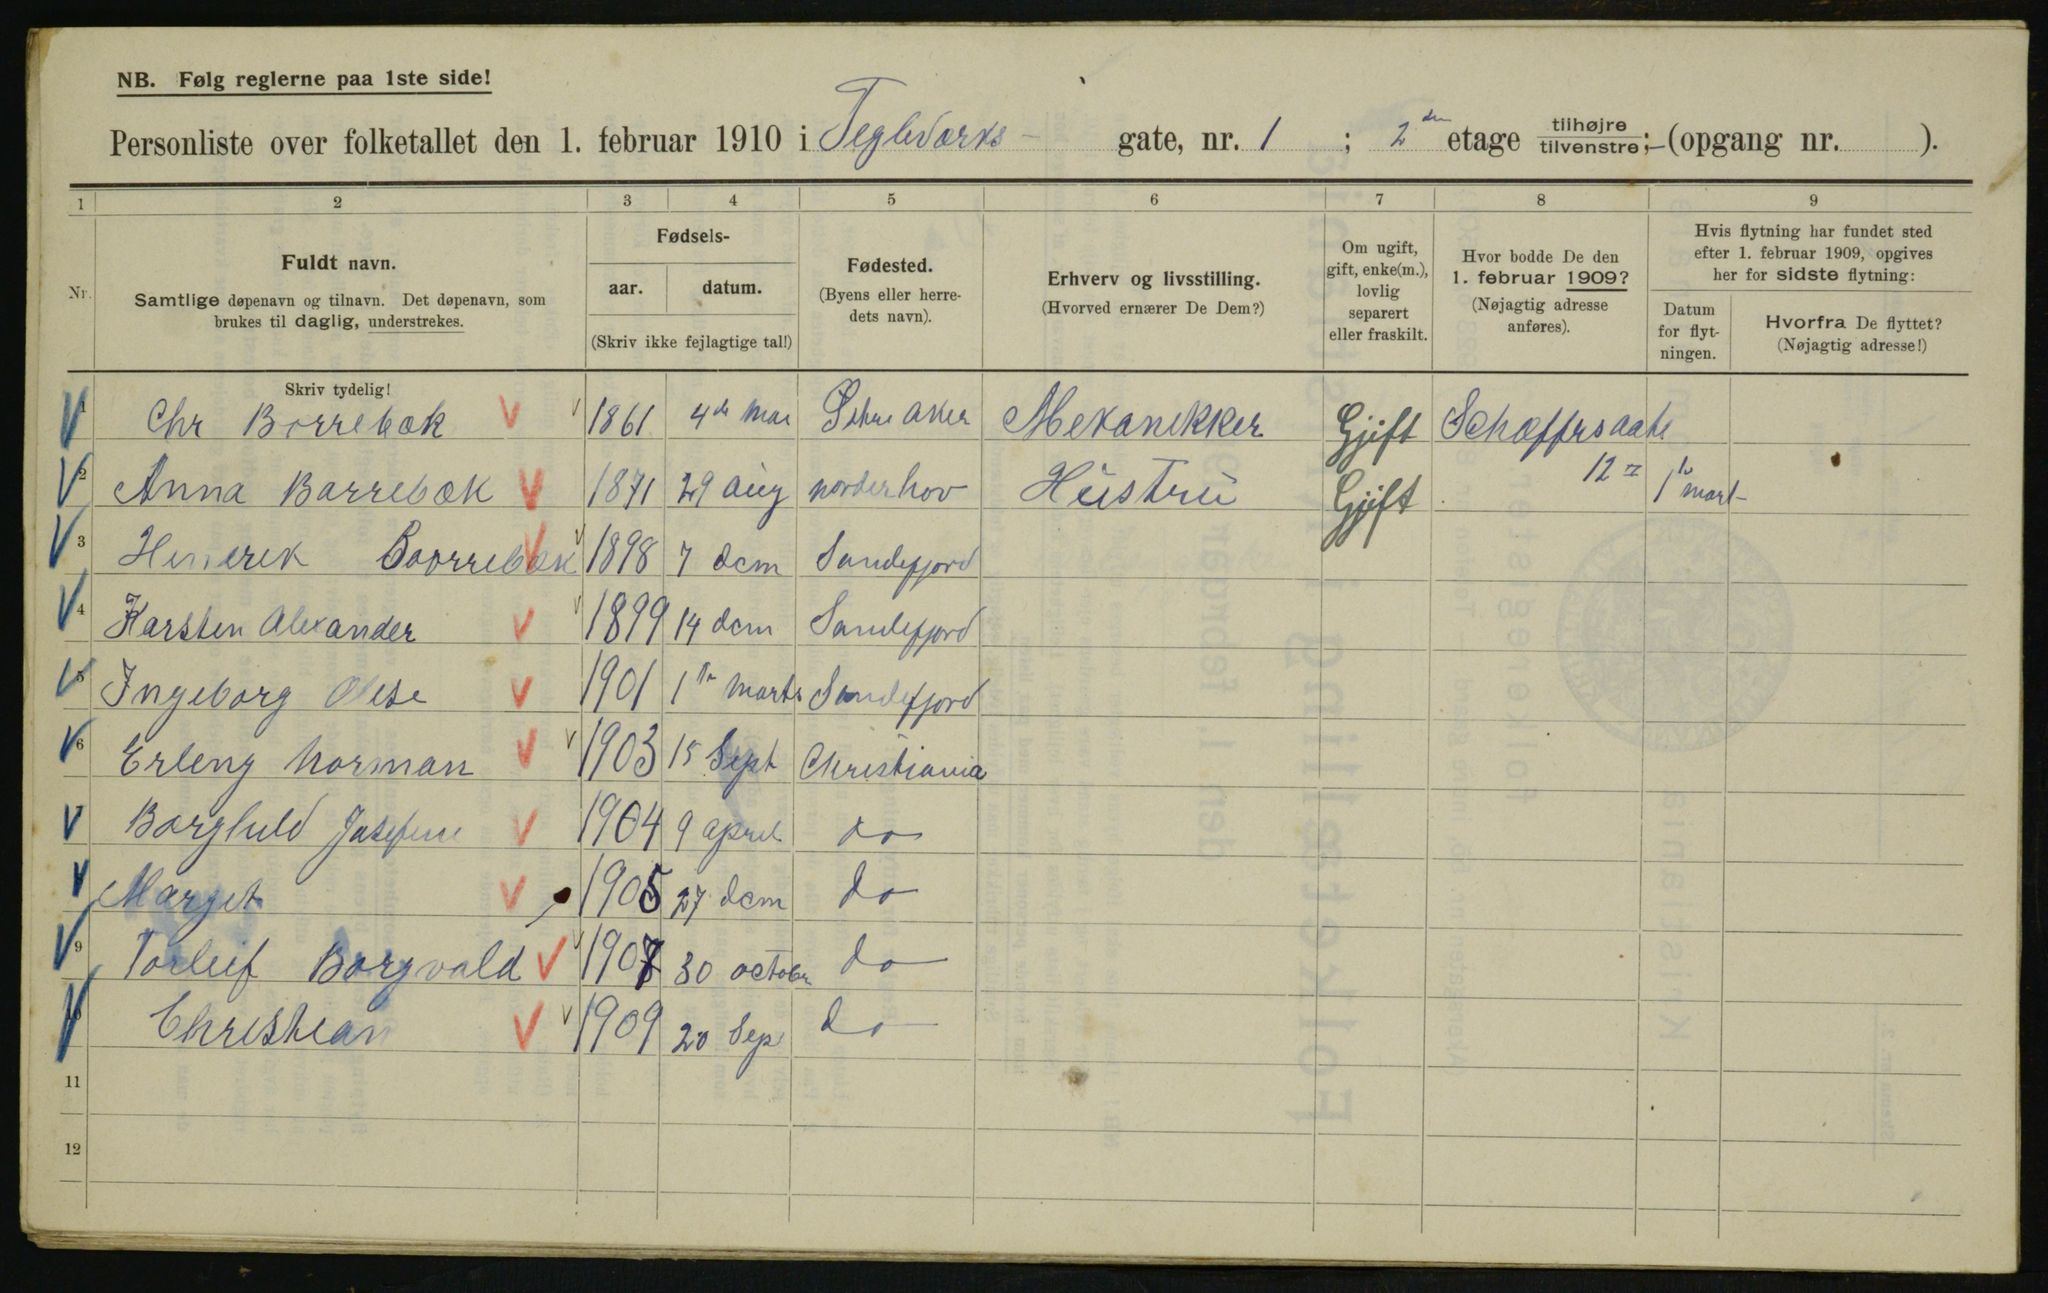 NB. Følg reglerne paa 1ste side!
Personliste over folketallet den 1. februar 1910 i Teglværks- gate, nr. 1 ; 2den etage tilhøjre / tilvenstre ;- (opgang nr. ).
1 2 3 4 5 6 7 8 9
Nr.
Fuldt navn.
Samtlige døpenavn og tilnavn. Det døpenavn, som
brukes til daglig, understrekes.
Skriv tydelig!
Fødsels-
aar. datum.
(Skriv ikke fejlagtige tal!)
Fødested.
(Byens eller herre-
dets navn).
Erhverv og livsstilling.
(Hvorved ernærer De Dem?)
Om ugift,
gift, enke(m.),
lovlig
separert
eller fraskilt.
Hvor bodde De den
1. februar 1909?
(Nøjagtig adresse
anføres).
Hvis flytning har fundet sted
efter 1. februar 1909, opgives
her for sidste flytning:
Datum
for flyt-
ningen.
Hvorfra De flyttet?
(Nøjagtig adresse!)
1 Chr Borrebæk 1861 4de Mai Aker Mekanekker Gjift
2 Anna Borrebæk 1871 29 aug norderhov Hustru Gjift 12 1 mart
3 Henderek Borrebæk 1898 7 dcm Sandefjord
4 Karsten Alexander 1899 14 dcm Sandefjord
5 Ingeborg Olese 1901 1 marts Sandefjord
6 Erleng Norman 1903 15 Sept Christiania
7 Borghild Josefine 1904 9 april do
Marget 1905 27 dcm do
9 Torleif Borgvald 1907 30 october do
10 Christian 1909 20 Sep do
11
12